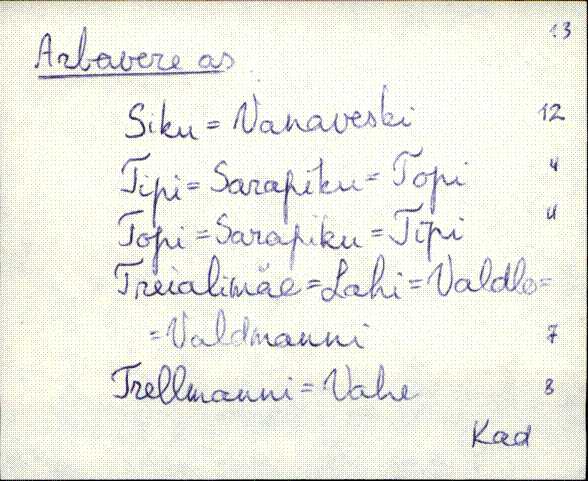 13
Arbavere as
Siku = Vanaveski 12
Tipi = Sarapiku = Topi 4
Topi = Sarapiku = Tipi 4
Treialimäe = Lahi = Valdlo =
= Valdmanni 7
Trellmanni = Vahe 8
Kad